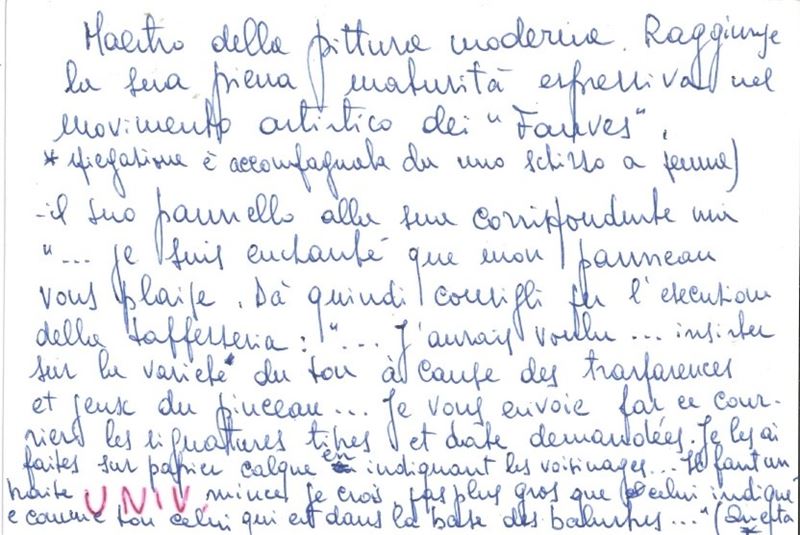 Maestro della pittura moderna. Raggiunge
la sua piena maturità espressiva nel
movimento artistico dei "Fauves".
* spiegazione è accompagnata da uno schizzo a penna)
- il suo pannello alla sua corrispondente
"... je suis enchanté que mon panneau
vous plaise. Dà quindi consigli per l'esecuzione
della tappezzeria: "... J'aurais voulu ... insister
sur la varieté du ton à cause des trasparences
et jeux du pinceau... Je vous envoie par ce cour-
rier les signatures tipes et date demandées. Je les ai
faites sur papier calque en indiquant les voisinages... Il faut un
traité UNIV. mince je crois, pas plus gros que celui indiqué
e comme ton celui qui est dans la base des balustres..." (Questa
*